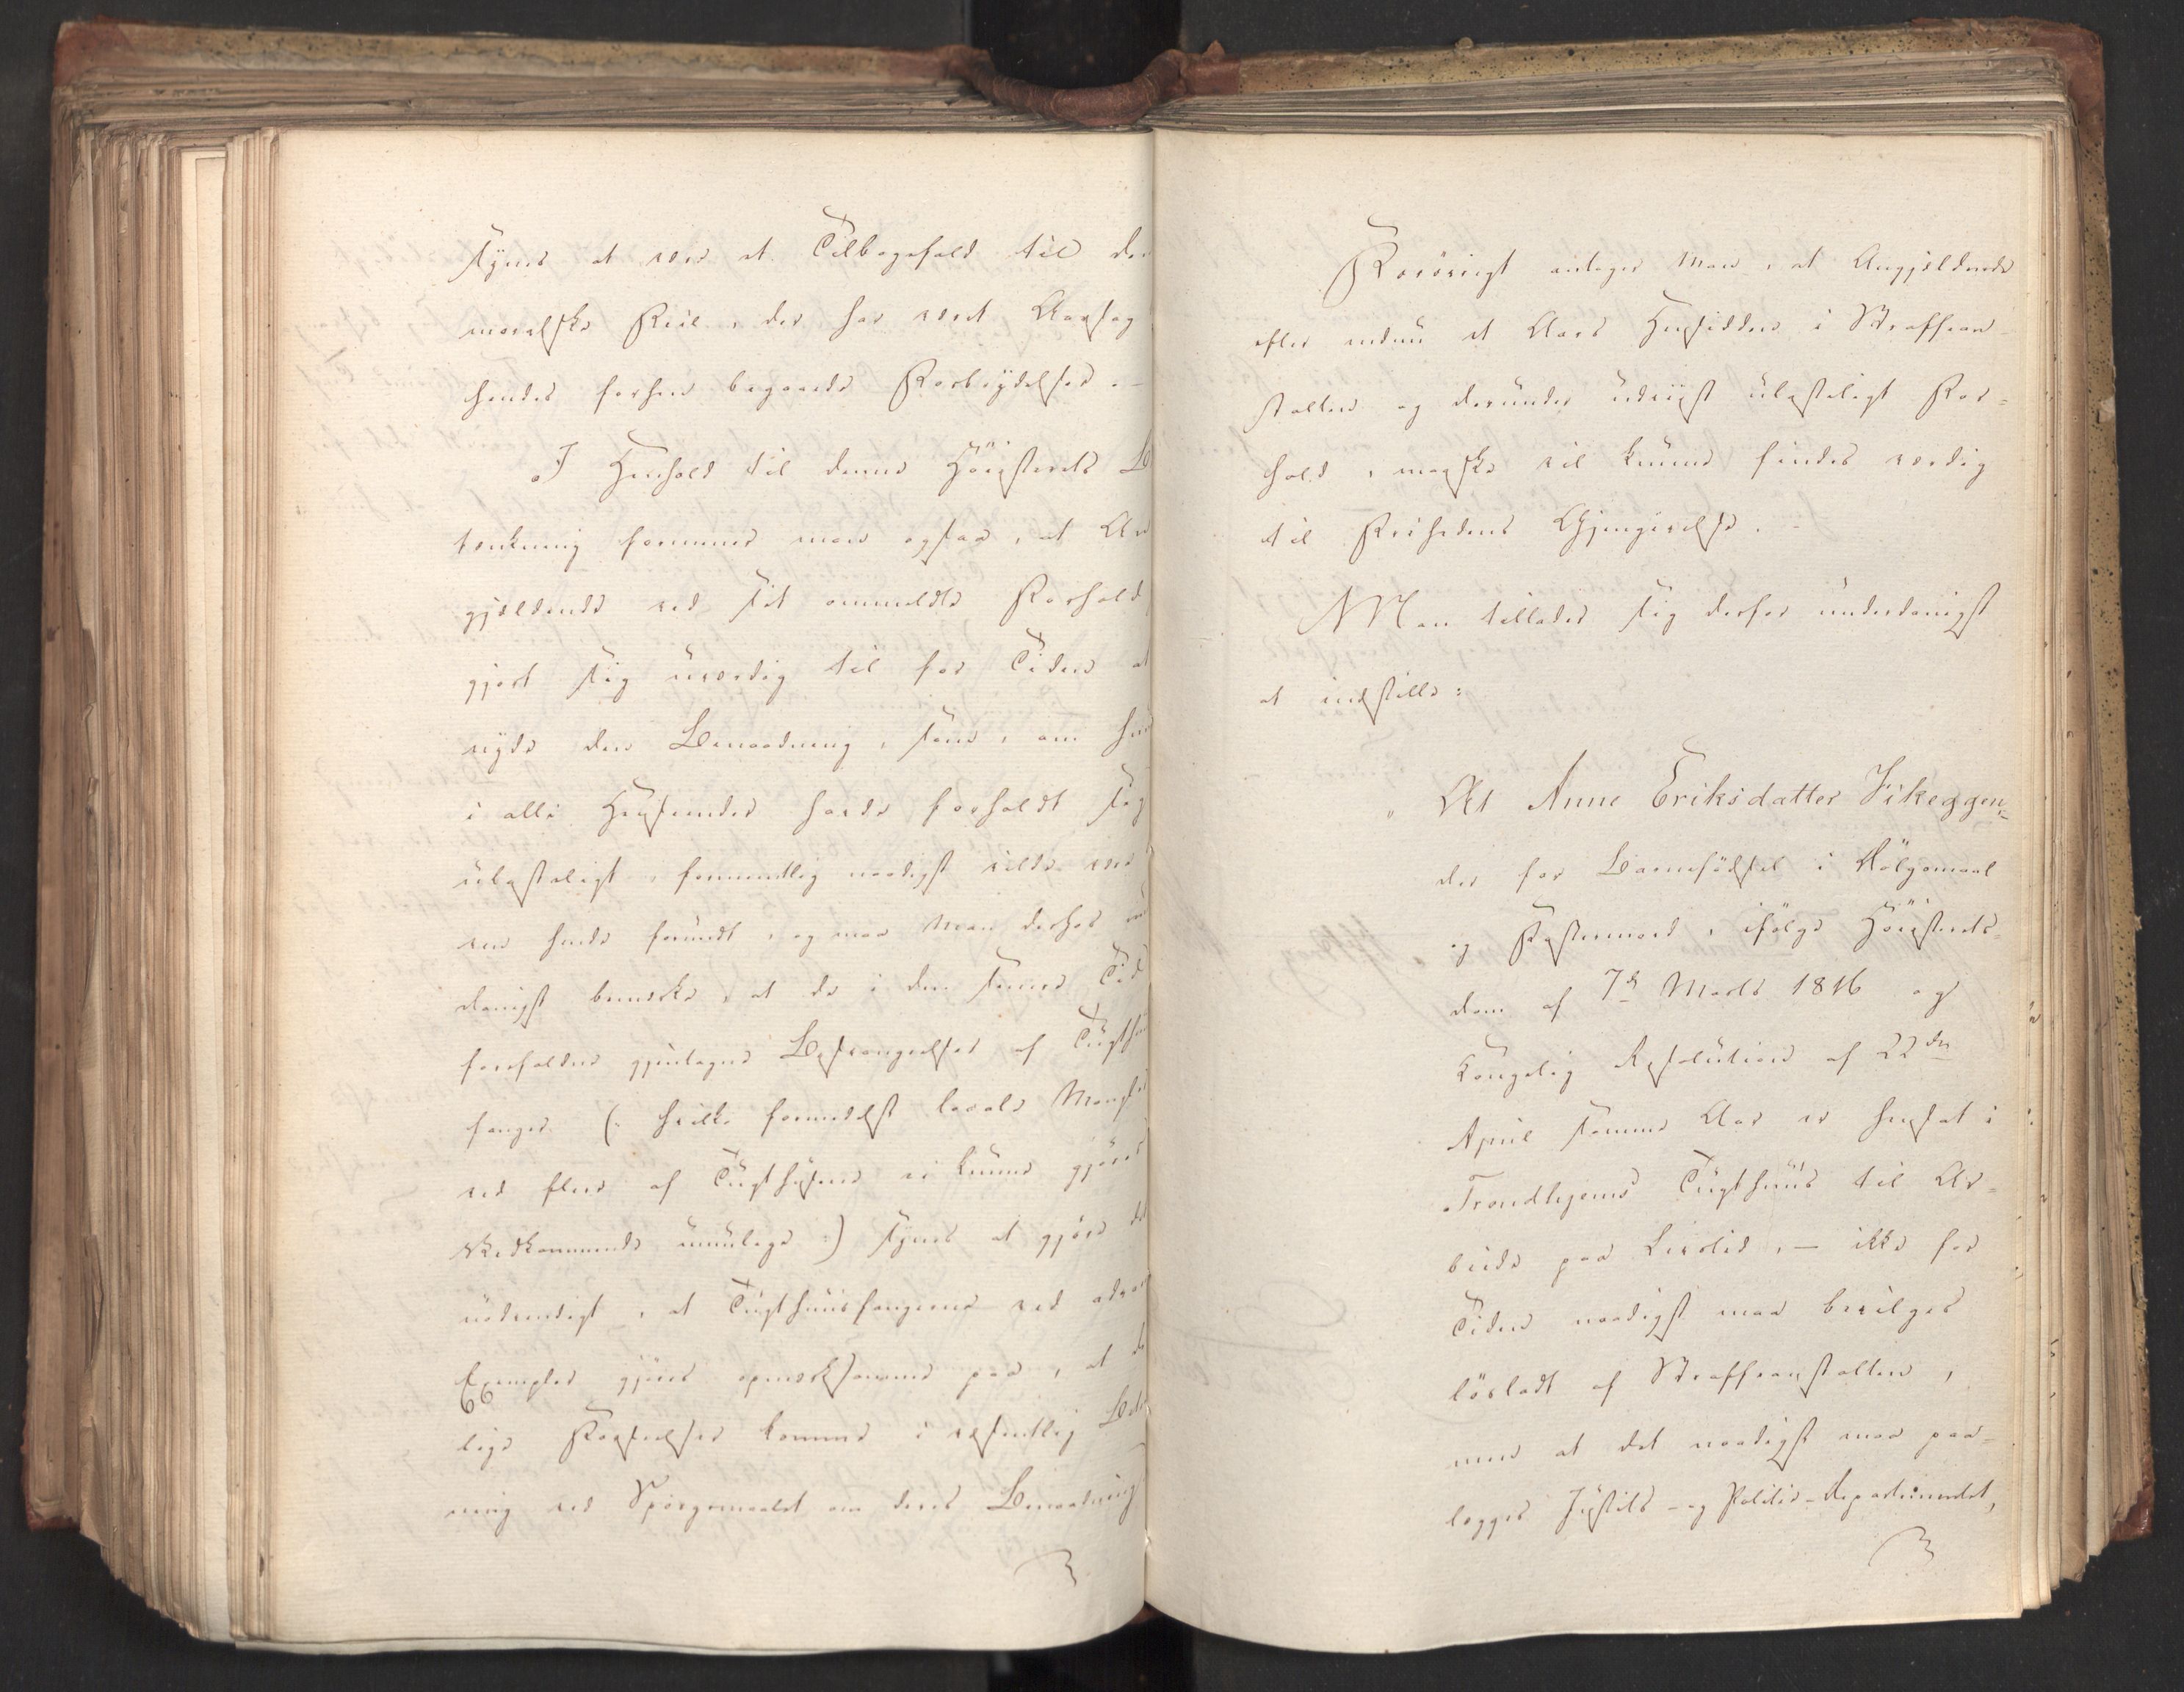 synes at være et Tilbagefald til den
moralske Feil, der har været Aarsag
hendes forhen begaaede Forbrydelser. —
I Henhold til denne Høiesterets Be
tænkning formener man ogsaa, at An
gjældende ved sit anmeldte Forhold
gjort sig uværdig til for Tiden at
nyde den Benaadning, som, om hun
i alle Henseender havde forholdt sig
ulasteligt, formentlig naadigst vilde være
ren hende forundt, og maa Man derhos un
danigst bemærke, at de i den senere Tid
forefaldne gjentagne Besvangrelser af Tugthuus
fanger (: hvilke formedelst locale Mangler
ved flere af Tugthusene ei kunne gjøres
Vedkommende umulige :) synes at gjøre det
nødvendigt, at Tugthuusfangerne ved advar
Exempler gjøres opmærksomme paa, at de
lige Forseelser komme i væsentlig Betragt
ning ved Spørgsmaalet om deres Benaadning
Forøvrigt antager Man, at Angjældende
efter endnu et Aars Hensidden i Straffean-
stalten og derunder udviist ulasteligt For-
hold, maaske vil kunne findes værdig
til Frihedens Gjengivelse. -
Man tillader sig derfor underdanigst
at indstille:
„At Anne Eriksdatter Vikeggen,
der for Barnefødsel i Dølgsmaal
og Fostermord, ifølge Høiesterets-
dom af 7de Marts 1816 og
Kongelig Resolution af 22den
April samme Aar er hensat i
Trondhjems Tugthuus til Ar-
beide paa Livstid, — ikke for
Tiden naadigst maa bevilges
løsladt af Straffeanstalten,
men at det naadigst maa paa-
lægges Justits- og Politie-Departementet,